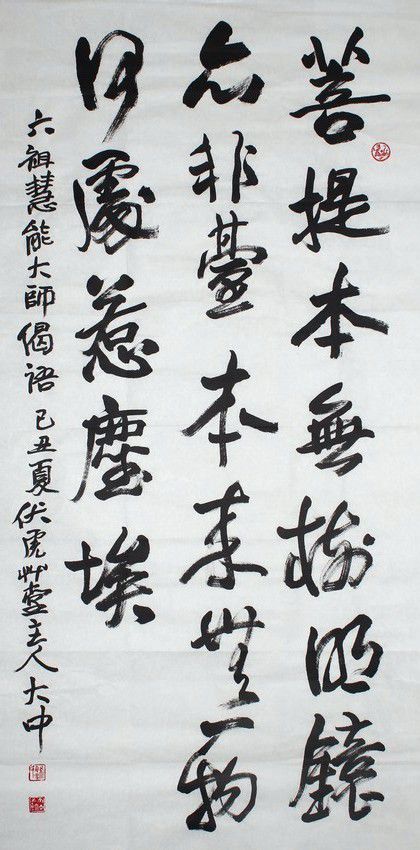 菩提本無樹明鏡
亦非臺本來無一物
何處惹塵埃
六祖慧能大師偈語 己丑夏 伏虎艸堂主人大中